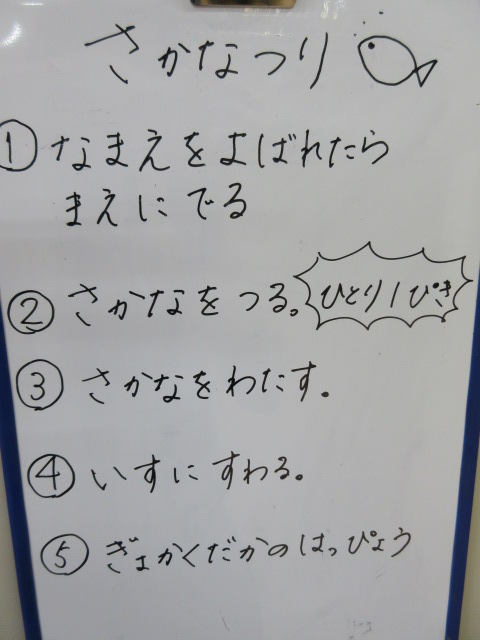 さかなつり
① なまえをよばれたら
まえにでる
② さかなをつる。 ひとり1ぴき
③ さかなをわたす。
④ いすにすわる。
⑤ ぎょかくだかのはっぴょう